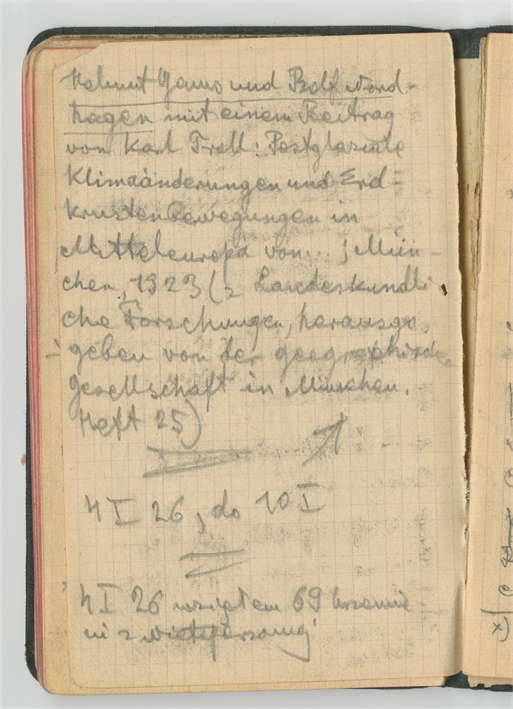 Helmut Gams und Rolf Nord-
hagen mit einem Beitrag
von Karl Troll: Postglaziale
Klimaänderungen und Erd=
krustenbewegungen in
Mitteleuropa von... ; Mün-
chen, 1923 (= Landeskundli
che Forschungen, herausge
geben von der geographische
Gesellschaft in München.
Heft 25)
4 I 26, do 10 I
4 I 26 wziąłem 69
z